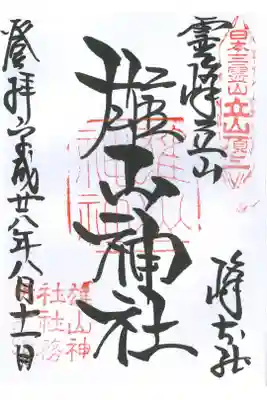 日本三霊山立山頂上
霊峰立山
峰本社
雄山神社
登拝平成廿八年八月十一日
雄山神
社社務